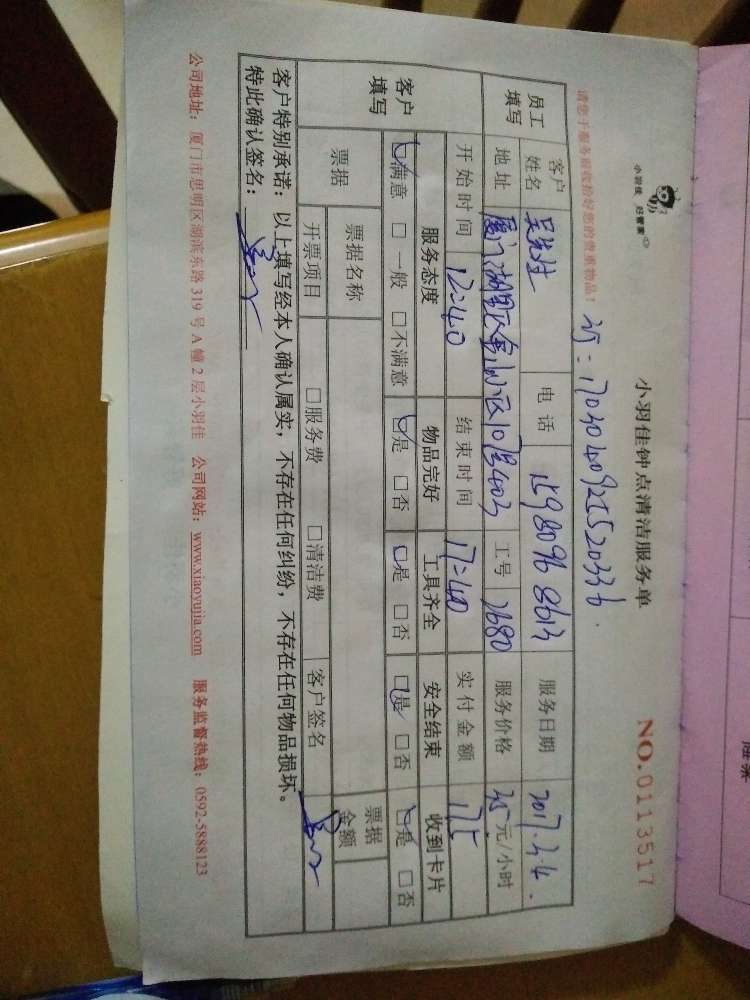 小羽佳 好管家
小羽佳钟点清洁服务单
NO.0113517
请您于服务前收拾好您的贵重物品!
17030409255520336
员工填写
客户姓名 吴先生 电话 15980968613 服务日期 2017.3.4.
地址 厦门湖里区金山小区10号403 工号 2680 服务价格 35元/小时
客户填写
开始时间 12:40 结束时间 17:40 实付金额 175
服务态度 物品完好 工具齐全 安全结束 收到卡片
□满意 □一般 □不满意 □是 □否 □是 □否 □是 □否 □是 □否
票据 票据名称 票据金额
开票项目 □服务费 □清洁费 客户签名
客户特别承诺:以上填写经本人确认属实,不存在任何纠纷,不存在任何物品损坏。
特此确认签名:
公司地址:厦门市思明区湖滨东路319号A幢2层小羽佳 公司网站:www.xiaoyujia.com 服务监督热线:0592-5888123